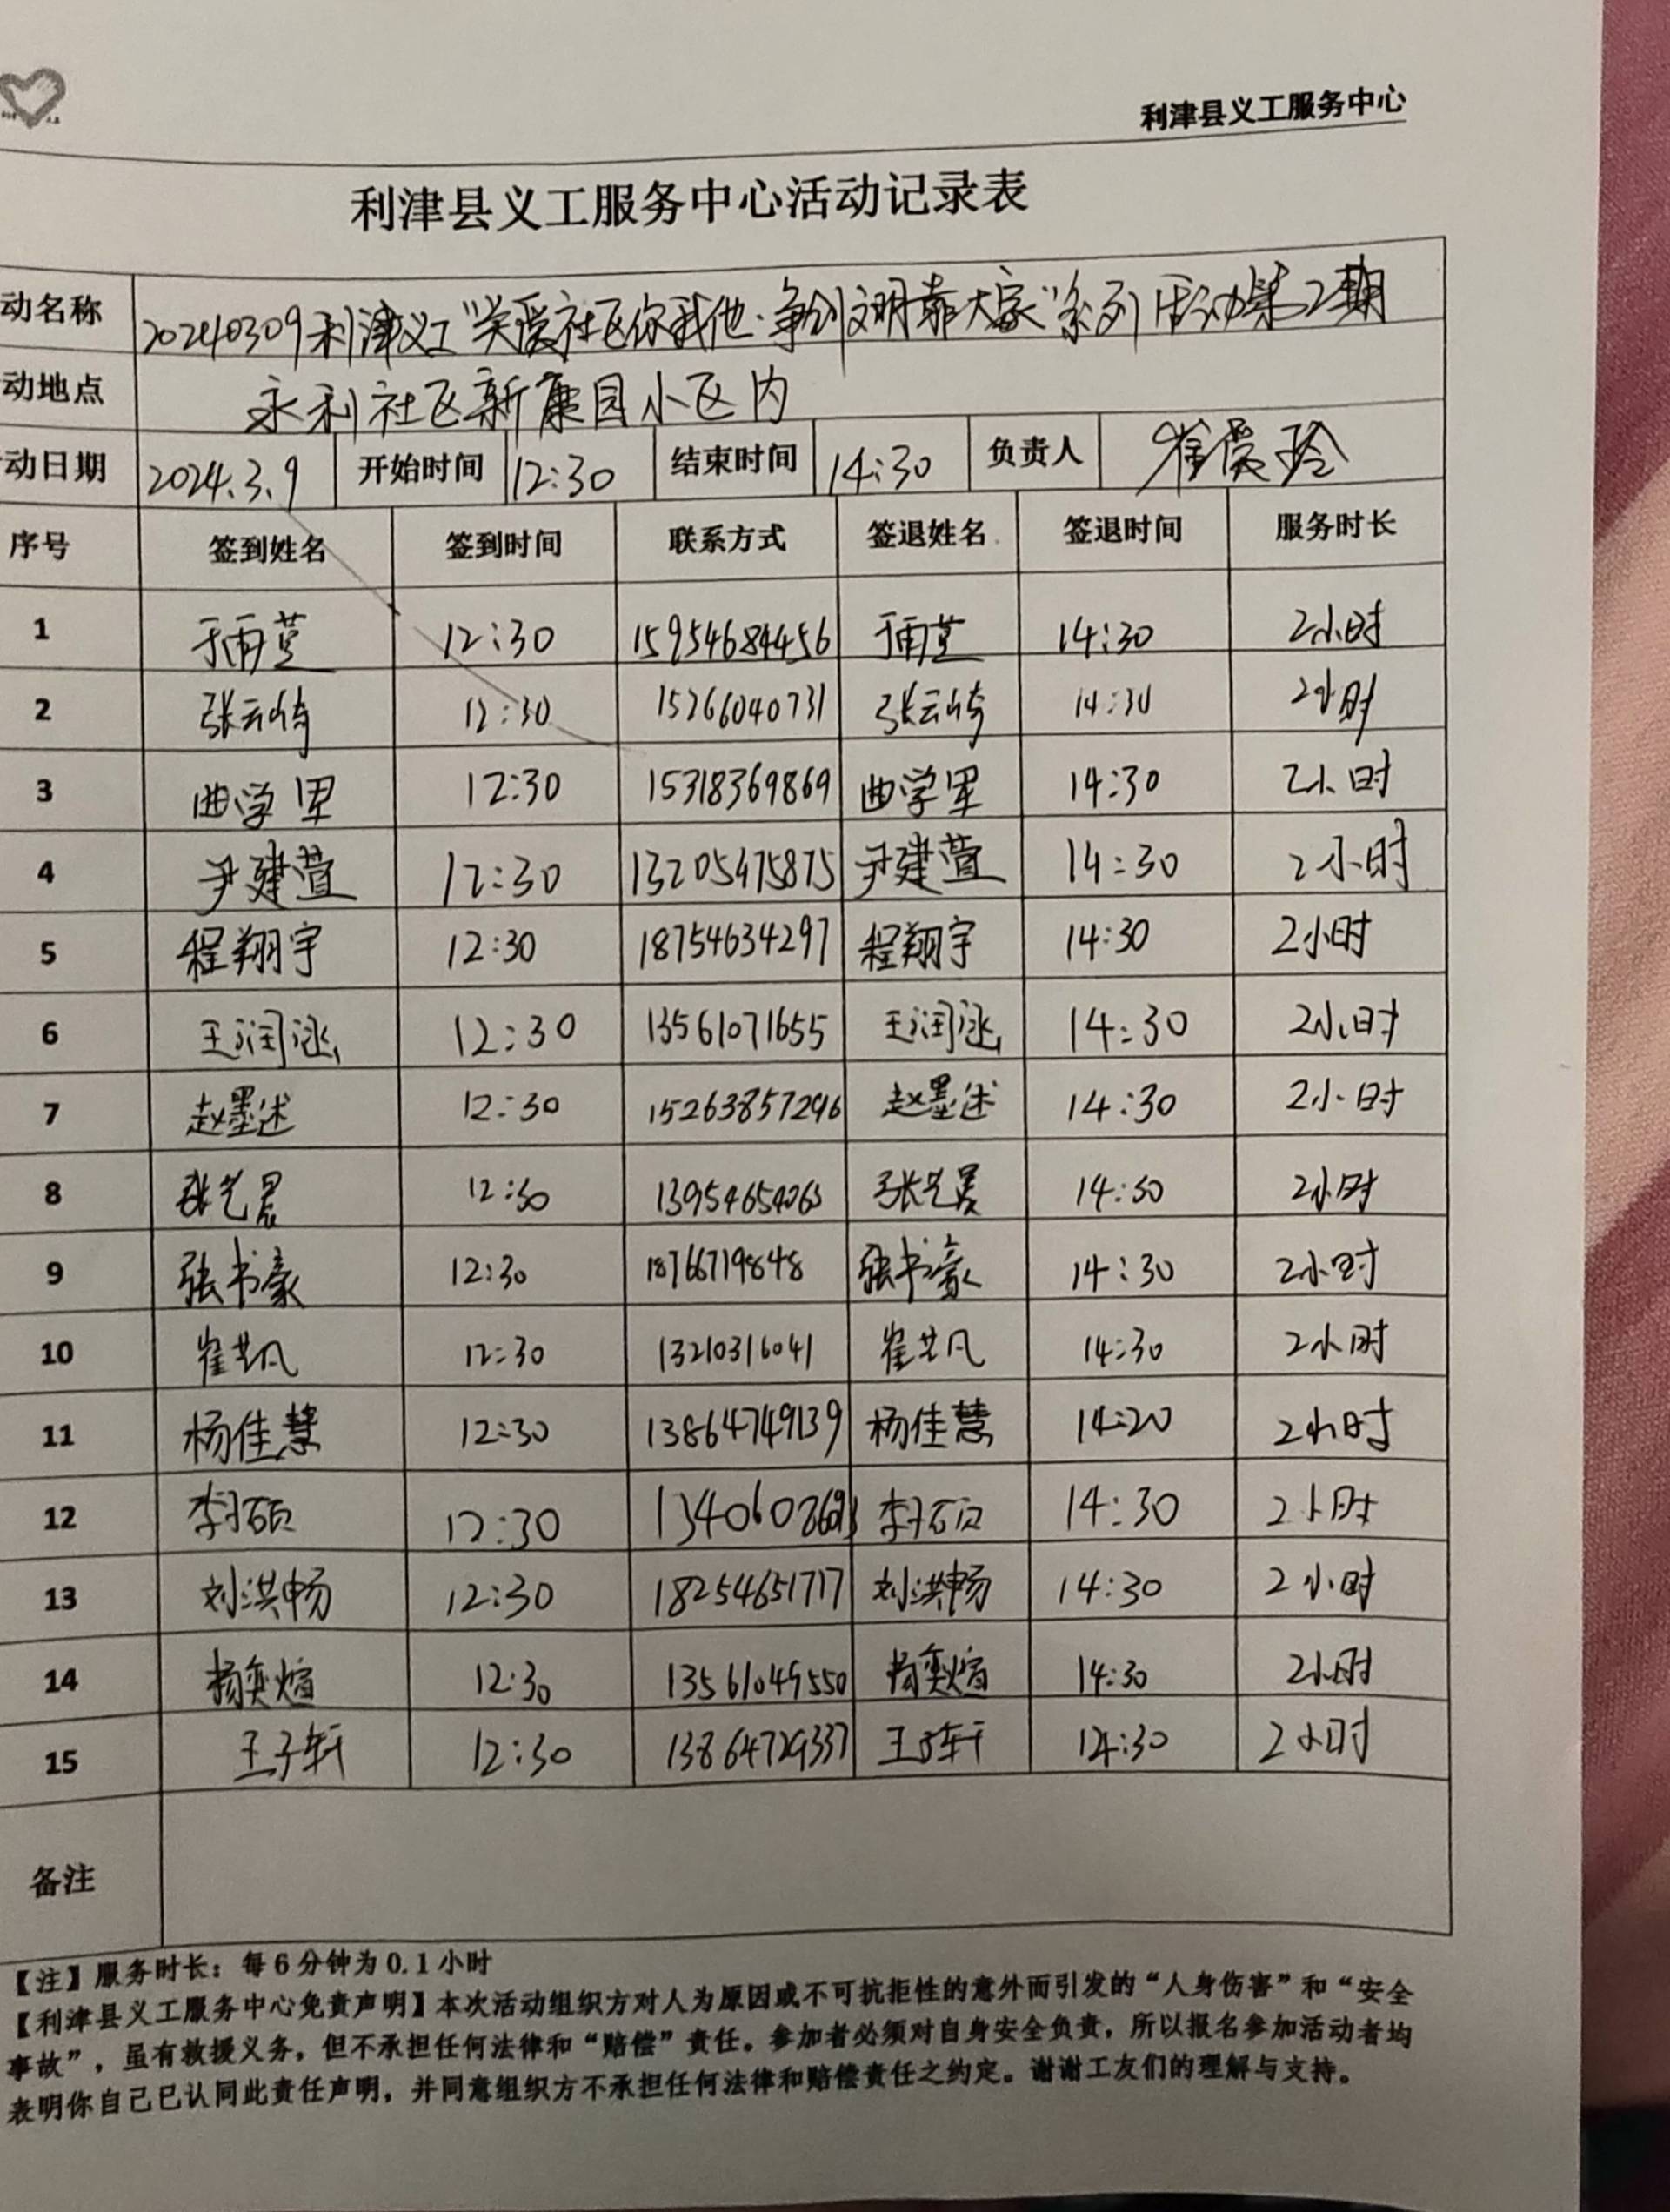 利津县义工服务中心
利津县义工服务中心活动记录表
动名称 20240309利津义工“关爱社区你我他·争创文明靠大家”系列活动第2期
动地点 永利社区新康园小区内
动日期 2024.3.9 开始时间 12:30 结束时间 14:30 负责人
序号 签到姓名 签到时间 联系方式 签退姓名 签退时间 服务时长
1 于雨萱 12:30 15954684456 于雨萱 14:30 2小时
2 张云崎 12:30 15266040731 张云崎 14:30 2小时
3 曲学军 12:30 15318369869 曲学军 14:30 2小时
4 尹建萱 12:30 13205475875 尹建萱 14:30 2小时
5 程翔宇 12:30 18754634297 程翔宇 14:30 2小时
6 王润涵 12:30 13561071655 王润涵 14:30 2小时
7 赵墨述 12:30 15263857296 赵墨述 14:30 2小时
8 张艺晨 12:30 14:30 2小时
9 张书豪 12:30 18766719848 张书豪 14:30 2小时
10 崔艺凡 12:30 13210316041 崔艺凡 14:30 2小时
11 杨佳慧 12:30 13864749139 杨佳慧 14:20 2小时
12 李子硕 12:30 李子硕 14:30 2小时
13 刘洪畅 12:30 18254651717 刘洪畅 14:30 2小时
14 杨奕煊 12:30 13561049550 杨奕煊 14:30 2小时
15 王子轩 12:30 13864729337 王子轩 14:30 2小时
备注
【注】服务时长：每6分钟为0.1小时
【利津县义工服务中心免责声明】本次活动组织方对人为原因或不可抗拒性的意外而引发的“人身伤害”和“安全
事故”，虽有救援义务，但不承担任何法律和“赔偿”责任。参加者必须对自身安全负责，所以报名参加活动者均
表明你自己已认同此责任声明，并同意组织方不承担任何法律和赔偿责任之约定。谢谢工友们的理解与支持。